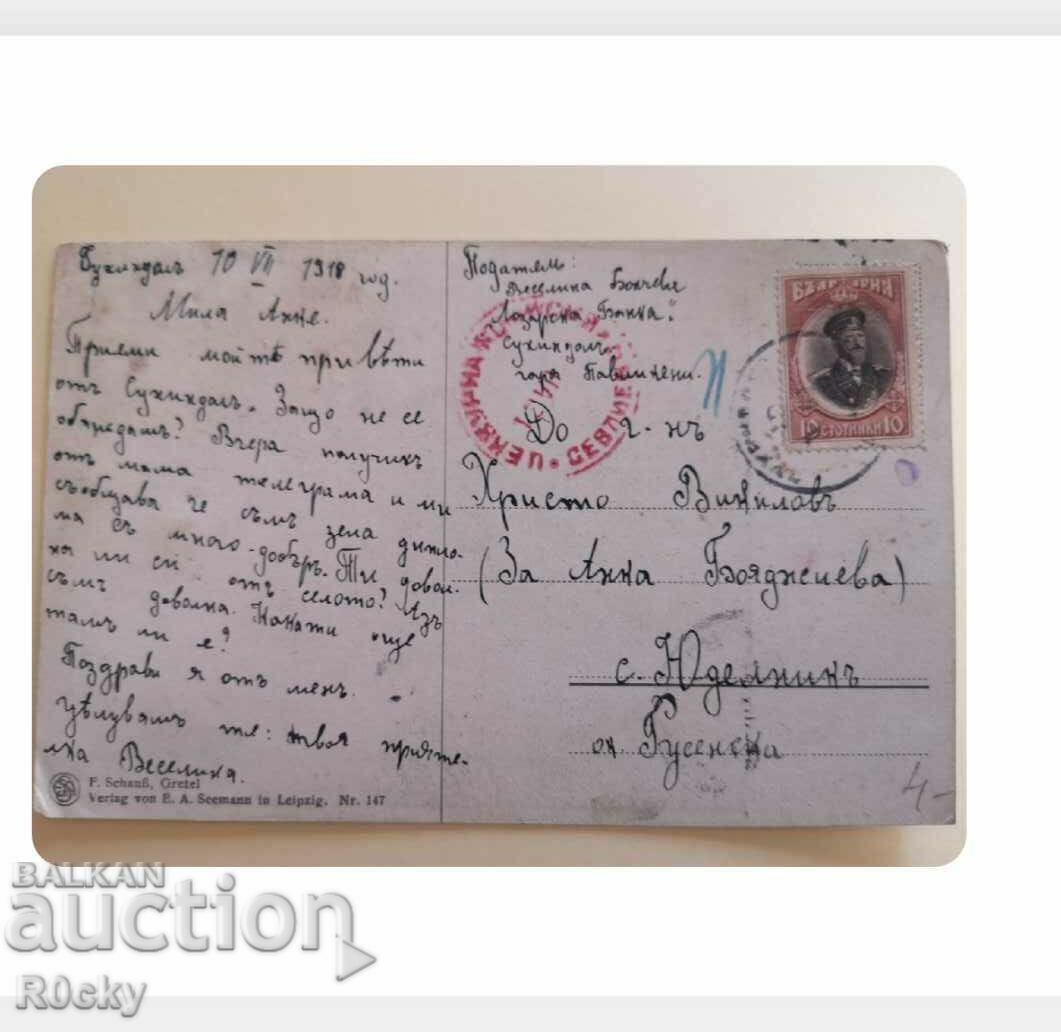 Сухиндолъ 10 VII 1918 год.
Мила Анче.
Приеми моитѣ привѣти
отъ Сухиндолъ. Защо не се
обаждашъ? Вчера получихъ
отъ мама телеграма и ми
съобщава че съмъ зела дипло-
ма съ много-добъръ. Ти довол-
на ли си отъ селото? Азъ
съмъ доволна. Какати още
тамъ ли е?
Поздрави я отъ менъ.
Цѣлувамъ те: твоя прияте-
лка Веселина.
F. Schauß, Gretel
Verlag von E. A. Seemann in Leipzig. Nr. 147
Подателъ:
Веселина Бончева
Лозарска Банка."
Сухиндолъ
гара Павликени.
ЦЕНЗУРНА КОМИСИЯ СЕВЛИЕВО
БЪЛГАРИЯ
10 СТОТИНКИ 10
До г-нъ
Христо
(За Анна Бояджиева)
с. Юделникъ
Русенска
4-
BALKAN
auction
R0cky